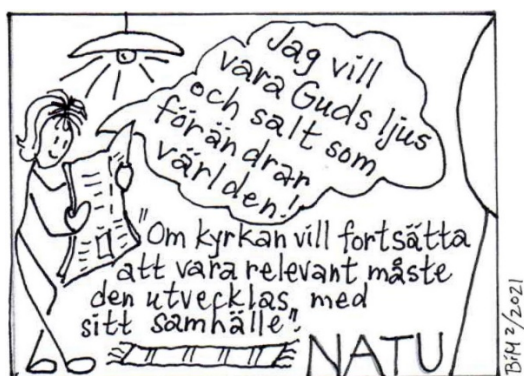 Jag vill
vara Guds ljus
och salt som
förändrar
världen!
"Om kyrkan vill fortsätta
att vara relevant måste
den utvecklas med
sitt samhälle".
NATU
BiM 2/2021